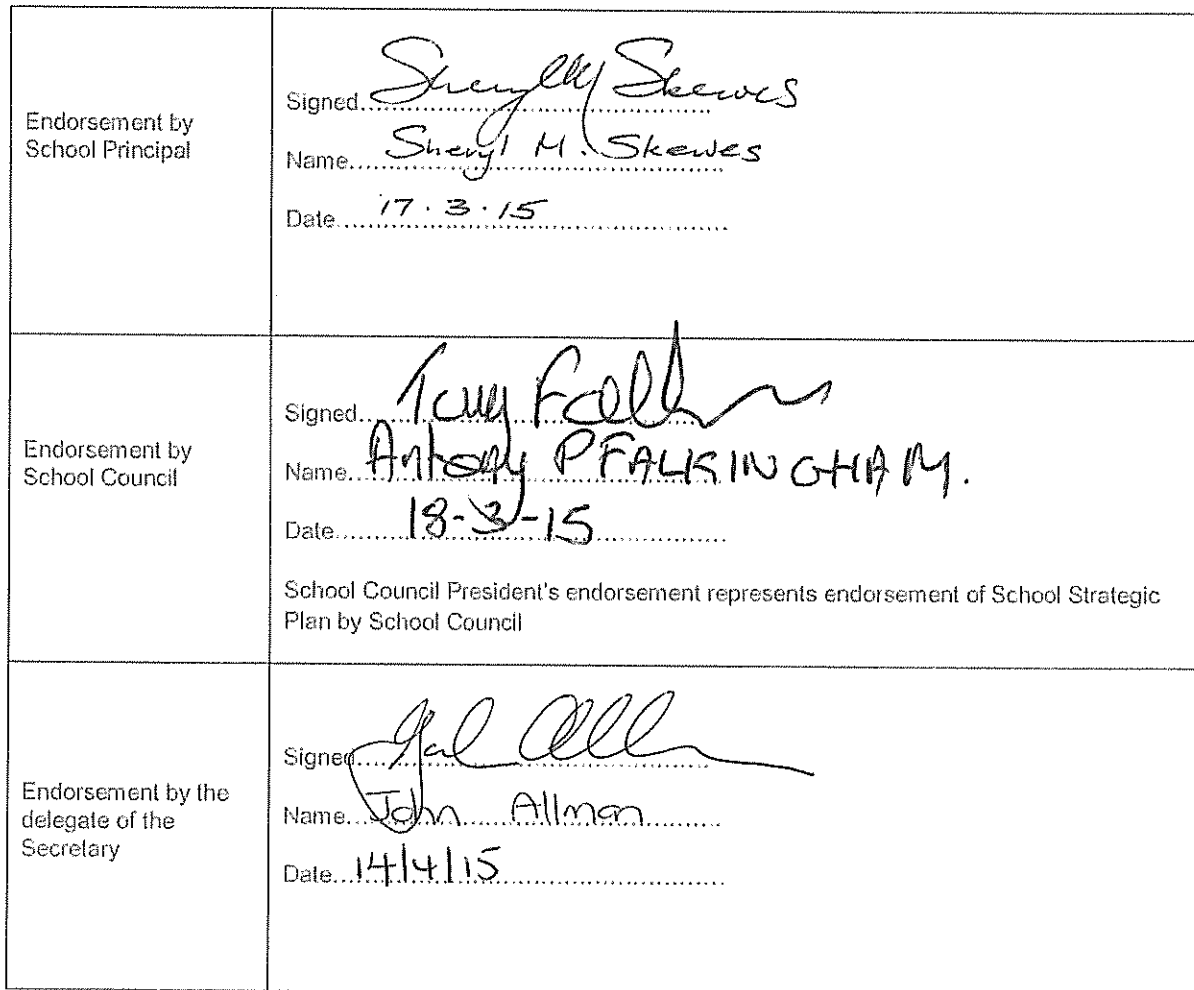 Endorsement by
School Principal
Signed Sheryl M Skewes
Name Sheryl M. Skewes
Date 17.3.15
Endorsement by
School Council
Signed Tony
Name Antony P FALKINGHAM.
Date 18-3-15
School Council President's endorsement represents endorsement of School Strategic
Plan by School Council
Endorsement by the
delegate of the
Secretary
Signed
Name John Allman
Date 14/4/15